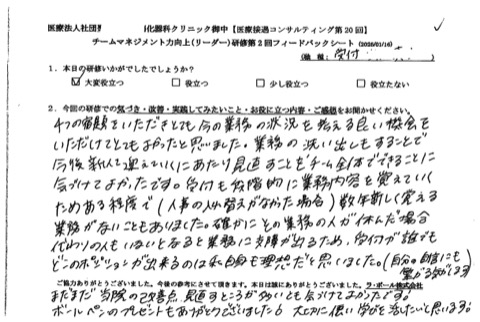 医療法人社団 化器科クリニック御中【医療接遇コンサルティング第20回】
チームマネジメント力向上(リーダー)研修第2回フィードバックシート (2020/01/16)
(職種: 受付
1. 本日の研修いかがでしたでしょうか?
☑大変役立つ □役立つ □少し役立つ □役立たない
2. 今回の研修での気づき・改善・実践してみたいこと・お役に立つ内容・ご感想をお聞かせください。
4つの宿題をいただきとても今の業務の状況を考える良い機会を
いただけてとてもよかったと思いました。業務の洗い出しをすることで
今後新人を迎えていくにあたり見直すこともチーム全体でできることに
気づけてよかったです。受付も段階的に業務内容を覚えていく
ためある程度で(人事の入れ替えがなかった場合)数年新しく覚える
業務がないこともありました。確かにその業務の人が休んだ場合
代わりの人もいないとなると業務に支障が出るため、受付が誰でも
どこのポジションが出来るのは私自身も理想だと思いました。(自分の自信にも
繋がる気がします)
ご協力ありがとうございました。今後の参考にさせて頂きます。本日は誠にありがとうございました。 ラ・ポール株式会社
まだまだ当院の改善点、見直すところが多いとも気づけてよかったです。
ボールペンのプレゼントもありがとうございました。大切に使い学びを活かしたいと思います。